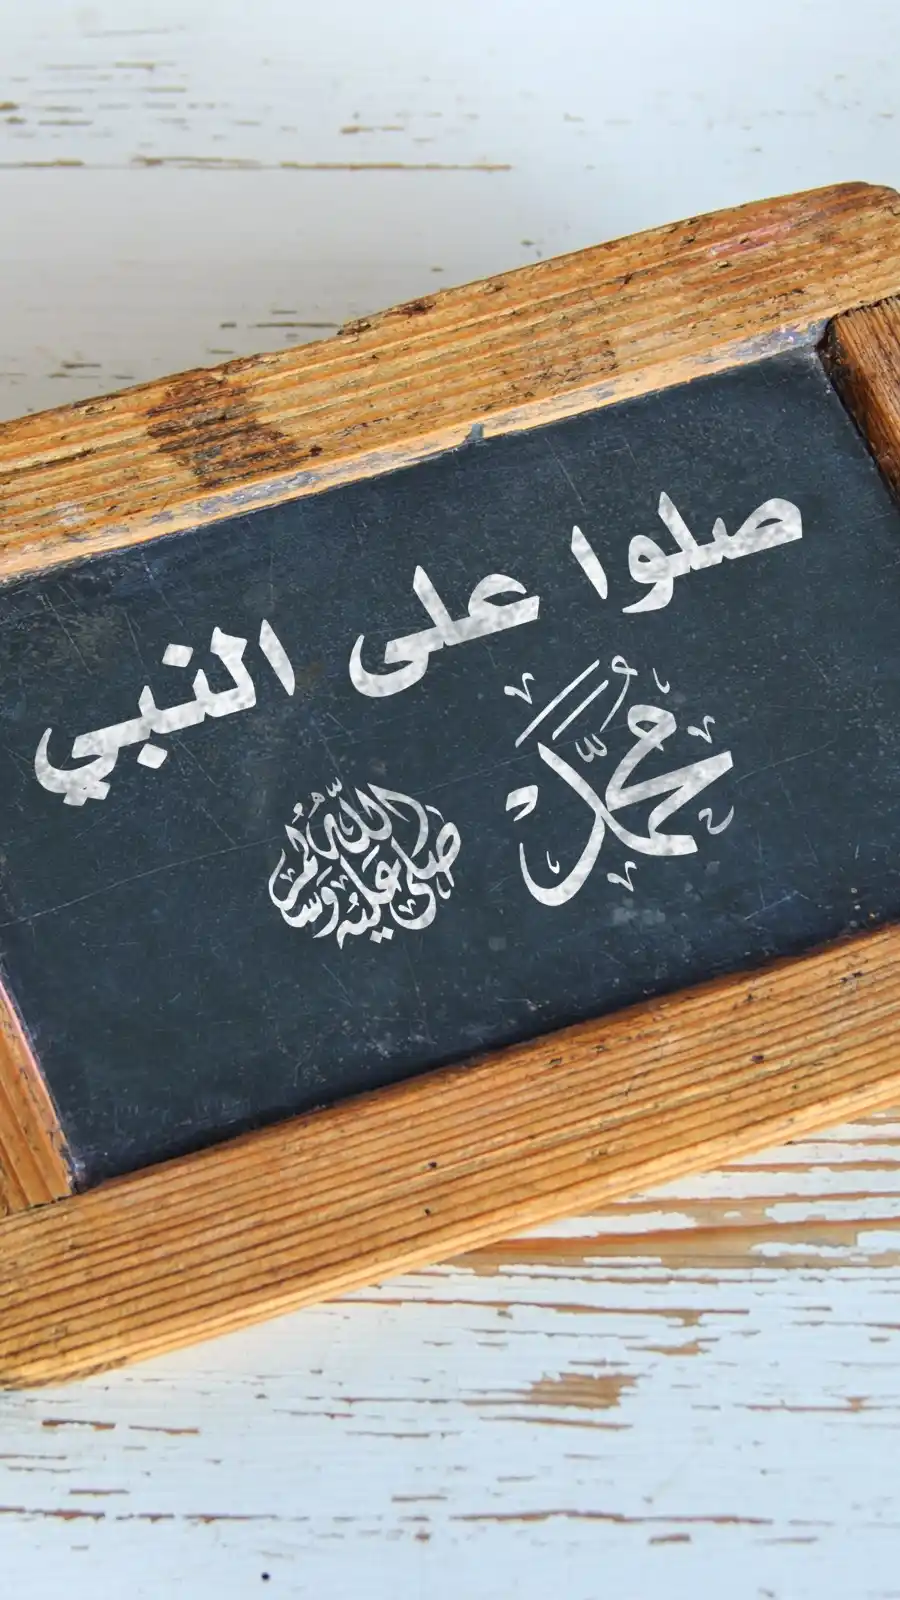 صلوا على النبي
محمد صلى الله عليه وسلم